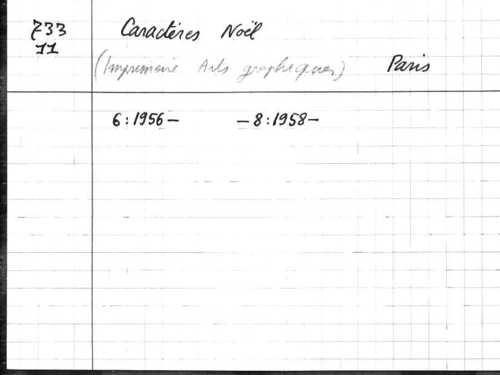 733 Caractères Noël
11
(Imprimerie Arts graphiques) Paris
6:1956— —8:1958—